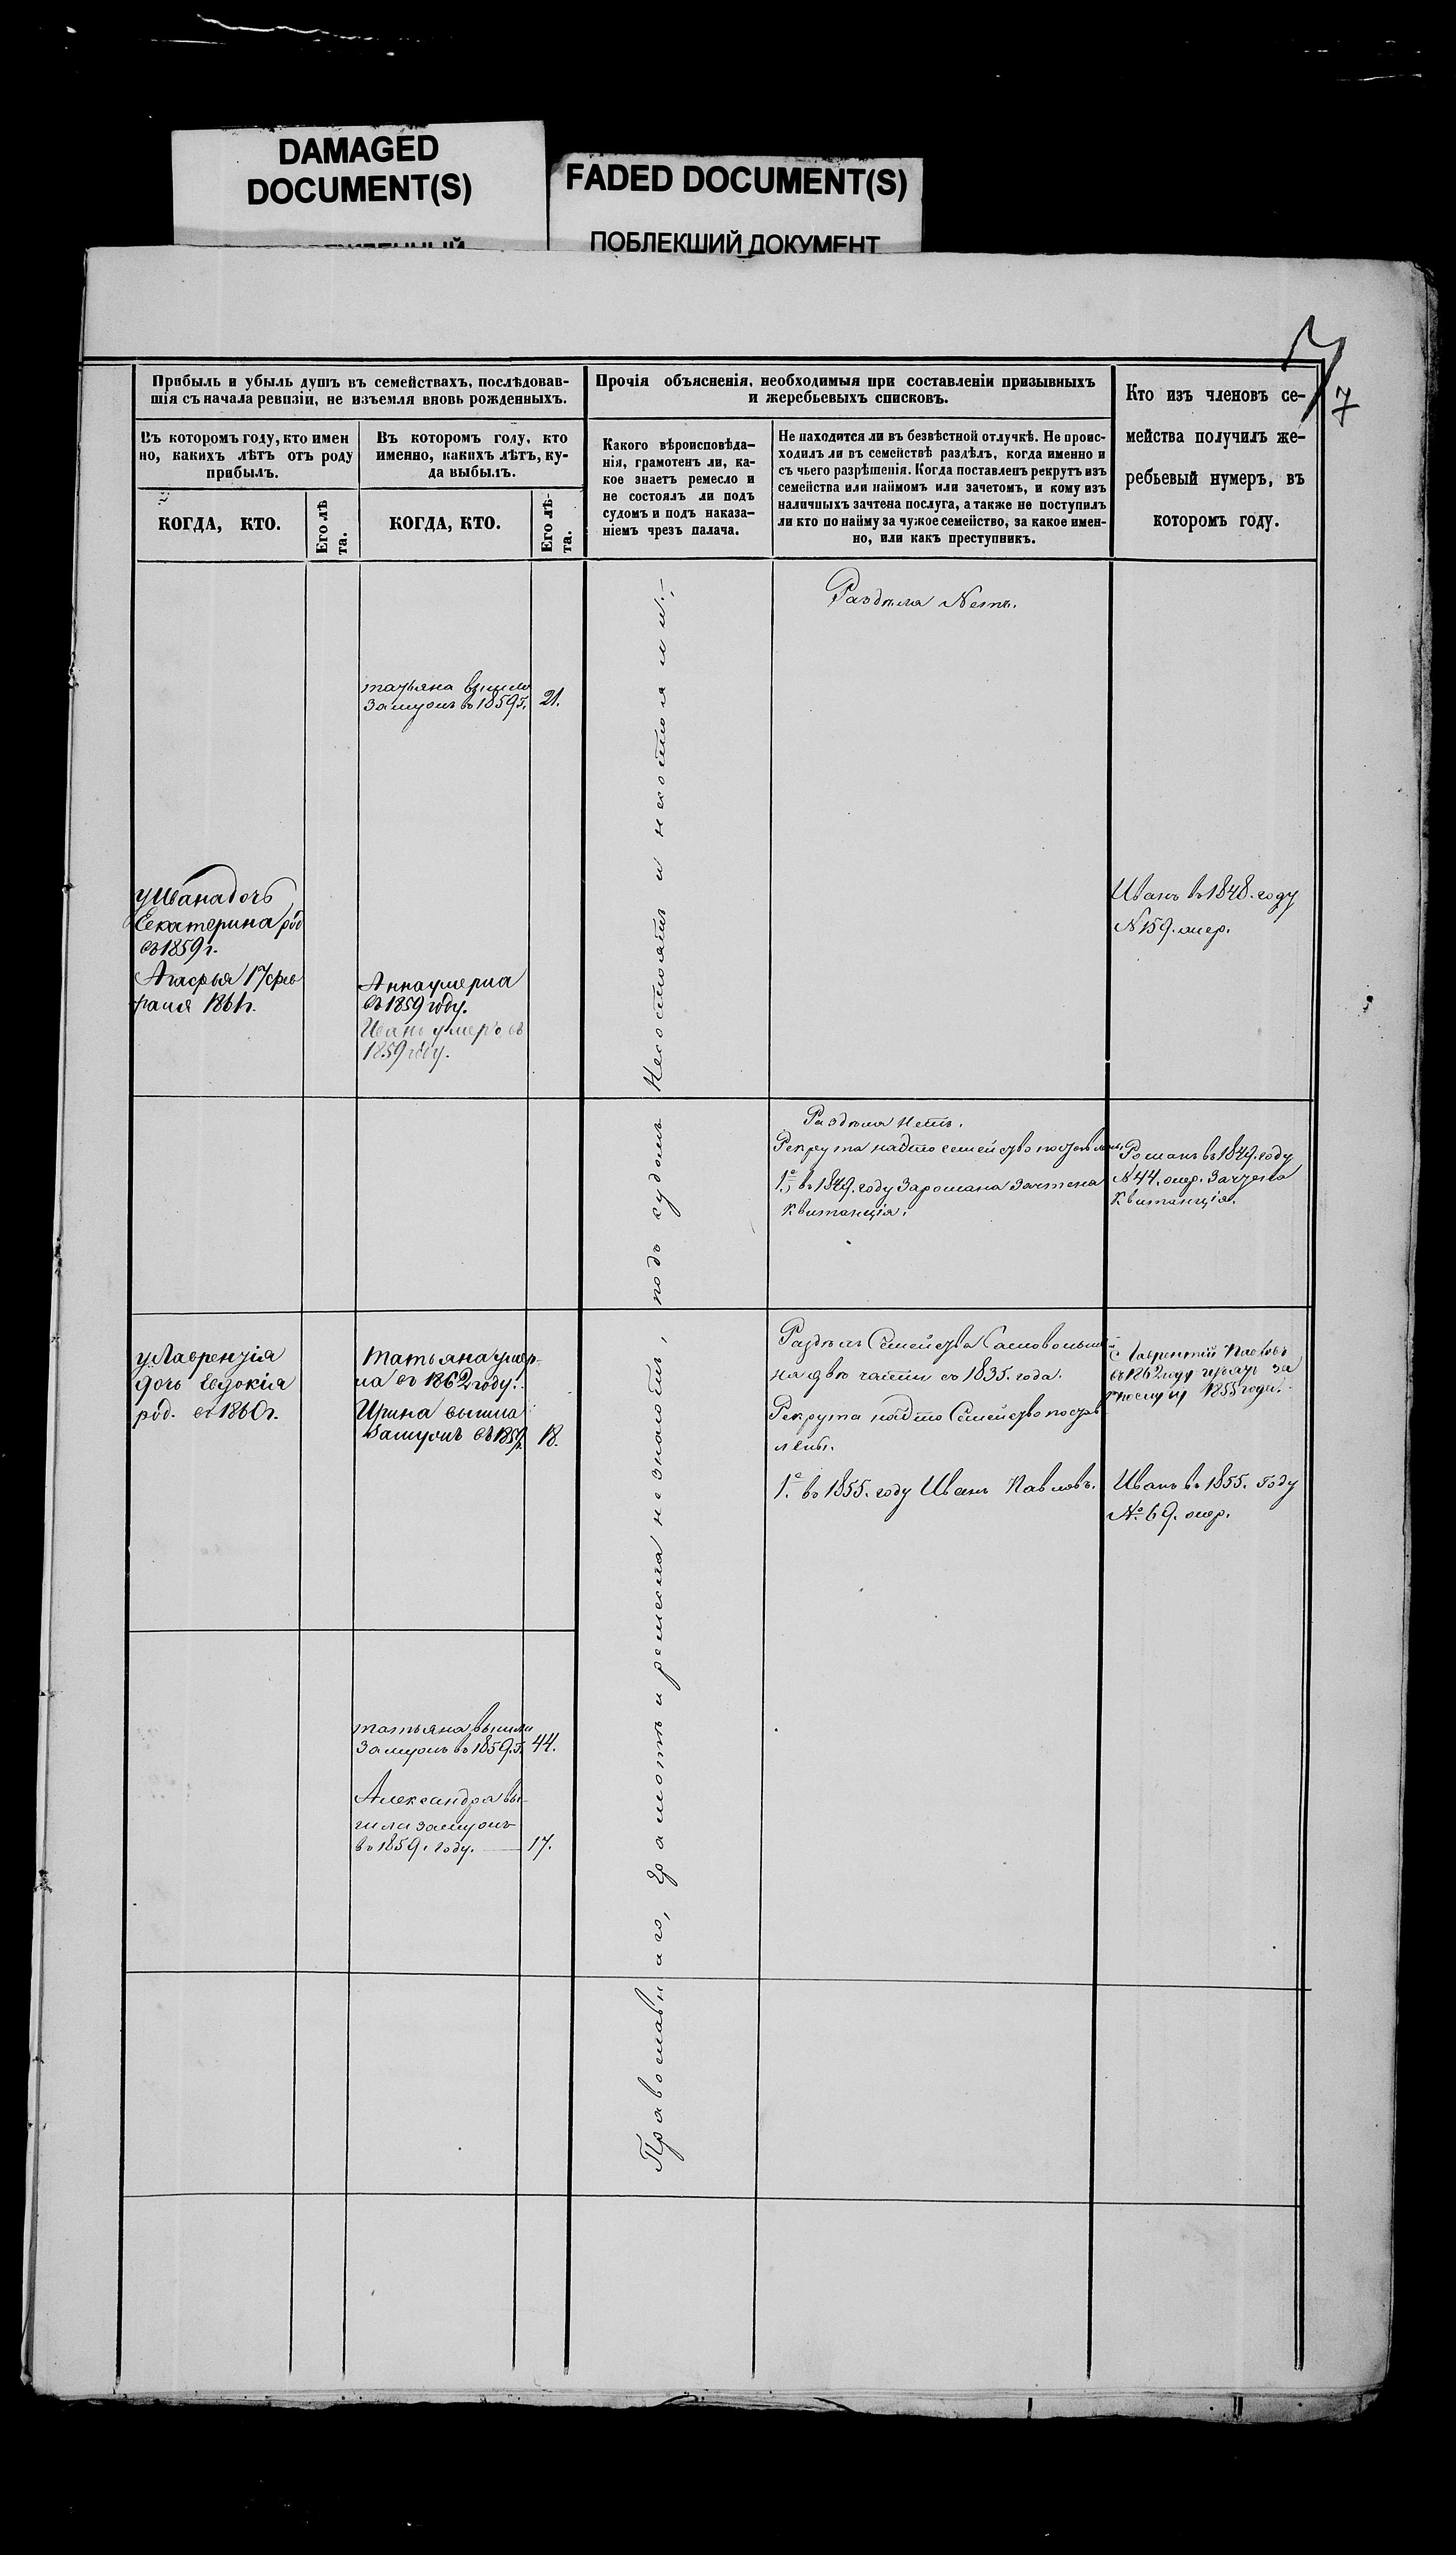 DAMAGED
DOCUMENT(S)
FADED DOCUMENT(S)
ПОБЛЕКШИЙ ДОКУМЕНТ
7
Прибыль и убыль душъ въ семействахъ, послѣдовав-
шія съ начала ревизіи, не изъемля вновь рожденныхъ.
Прочія объясненія, необходимыя при составленіи призывныхъ
и жеребьевыхъ списковъ.
Кто изъ членовъ се-
мейства получилъ же-
ребьевый нумеръ, въ
которомъ году.
Въ которомъ году, кто имен
но, какихъ лѣтъ отъ роду
прибылъ.
Въ которомъ году, кто
именно, какихъ лѣтъ, ку-
да выбылъ.
Какого вѣроисповѣда-
нія, грамотенъ ли, ка-
кое знаетъ ремесло и
не состоялъ ли подъ
судомъ и подъ наказа-
ніемъ чрезъ палача.
Не находится ли въ безвѣстной отлучкѣ. Не проис-
ходилъ ли въ семействѣ раздѣлъ, когда именно и
съ чьего разрѣшенія. Когда поставленъ рекрутъ изъ
семейства или наймомъ или зачетомъ, и кому изъ
наличныхъ зачтена послуга, а также не поступилъ
ли кто по найму за чужое семейство, за какое имен-
но, или какъ преступникъ.
КОГДА, КТО.
Его лѣ
та.
КОГДА, КТО.
Его лѣ-
та.
Раздѣла Нетъ.
татьяна вышла
замужъ въ 1859 г. 21.
у Ивана дочь
Екатерина род
въ 1859 г.
Агафья 17 фев
раля 1861 г.
Анна умерла
въ 1859 году.
Иванъ умеръ въ
1859 году.
Иванъ въ 1848. году
N 159. жер.
Раздѣла нетъ.
Рекрута
1е, въ 1849. году за романа зачтена
квитанція.
Романъ въ 1849. году
N 44. жер. зачтена
квитанція.
у Лаврентія
дочь Евдокія
род. въ 1860 г.
Татьяна умер-
ла въ 1862 году.
Ирина вышла
замужъ въ 18. 18.
Раздѣлъ Семейства
на двѣ части въ 1835. года.
Рекрута
лены.
1е. въ 1855. году Иванъ Павловъ.
Лаврентій Павловъ
въ 1862 году за
1855 года.
Иванъ въ 1855. году
№ 69. жер.
татьяна вышла
замужъ въ 1859. г. 44.
Александра вы-
шла замужъ
въ 1859. году. 17.
Православнаго, Грамотѣ и ремесла не знаютъ, подъ судомъ Несостоятъ и несостояли.